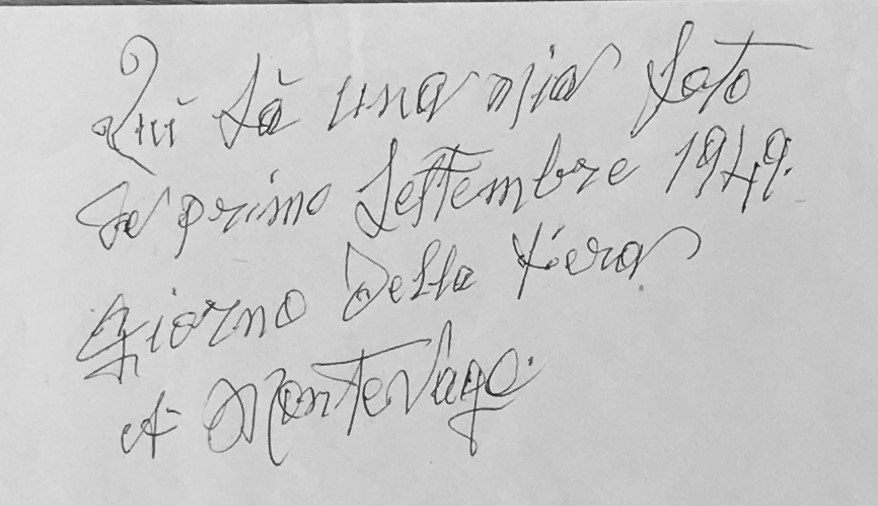 Quì Sà una mia foto
del primo Settembre 1949.
giorno Della fiera
A Montevago.